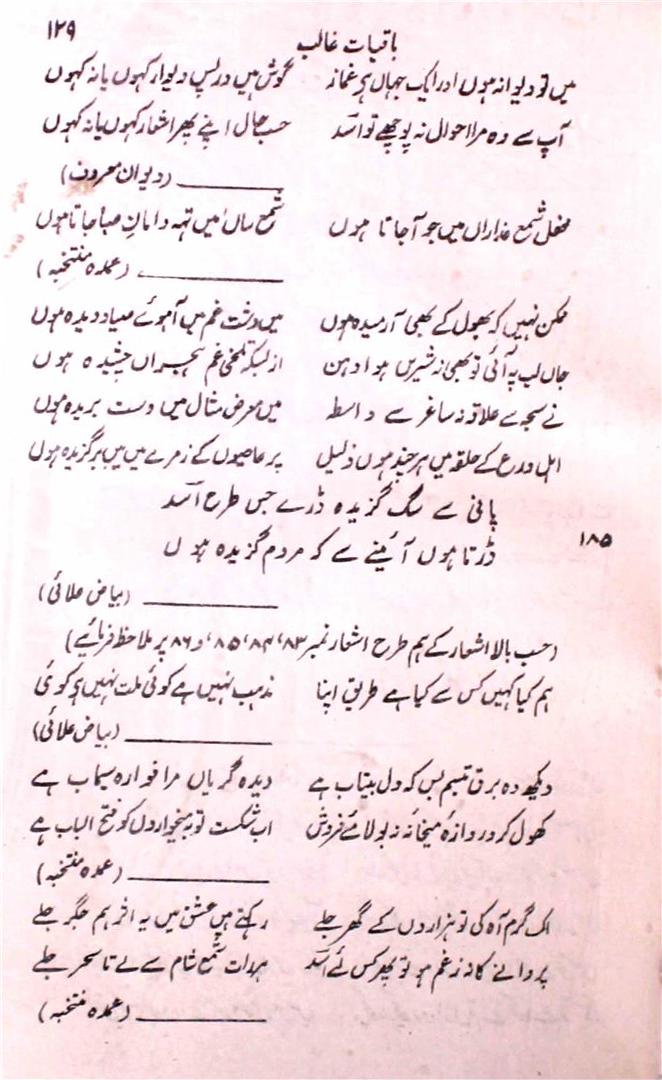 ۱۲۹
باقیات غالب
میں تو دیوانہ ہوں اور ایک جہاں ہی غماز گوش ہیں در پس دیوار کہوں یا نہ کہوں
آپ سے وہ مرا احوال نہ پوچھے تو اسد حسب حال اپنے پھر اشعار کہوں یا نہ کہوں
(دیوان معروف)
محفل شمع عذاراں میں جو آ جاتا ہوں شمع ساں میں تہہ دامان صبا جاتا ہوں
(عمدہ منتخبہ)
ممکن نہیں کہ بھول کے بھی آرمیدہ ہوں میں دشت غم میں آہوئے صیاد دیدہ ہوں
جاں لب پہ آئی تو بھی نہ شیریں ہوا دہن از بسکہ تلخیٔ غم ہجراں چشیدہ ہوں
نے سبحہ سے علاقہ نہ ساغر سے واسطہ میں معرض مثال میں دست بریدہ ہوں
اہل ورع کے حلقہ میں ہر چند ہوں ذلیل پر عاصیوں کے زمرے میں میں برگزیدہ ہوں
پانی سے سگ گزیدہ ڈرے جس طرح اسد
۱۸۵ ڈرتا ہوں آئینے سے کہ مردم گزیدہ ہوں
(بیاض علائی)
(حسب بالا اشعار کے ہم طرح اشعار نمبر ۸۳، ۸۴، ۸۵، و ۸۶ پر ملاحظہ فرمائیے)
ہم کیا کہیں کس سے کیا ہے طریق اپنا مذہب نہیں ہے کوئی ملت نہیں ہی کوئی
(بیاض علائی)
دیکھ وہ برق تبسم بس کہ دل بیتاب ہے دیدہ گریاں مرا فوارہ سیماب ہے
کھول کر دروازۂ میخانہ نہ بولا مے فروش اب شکست توبہ میخواروں کو فتح الباب ہے
(عمدہ منتخبہ)
اک گرم آہ کی تو ہزاروں کے گھر جلے رکھتے ہیں عشق میں یہ اثر ہم جگر جلے
پروانے کا نہ غم ہو تو پھر کس لئے اسد ہر رات شمع شام سے لے تا سحر جلے
(عمدہ منتخبہ)